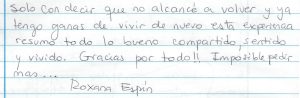 solo con decir que no alcancé a volver y ya
tengo ganas de vivir de nuevo esta experincia
resumo todo lo bueno compartido, sentido
y vivido. Gracias por todo!! Imposible pedir
mas...
Roxana Espín